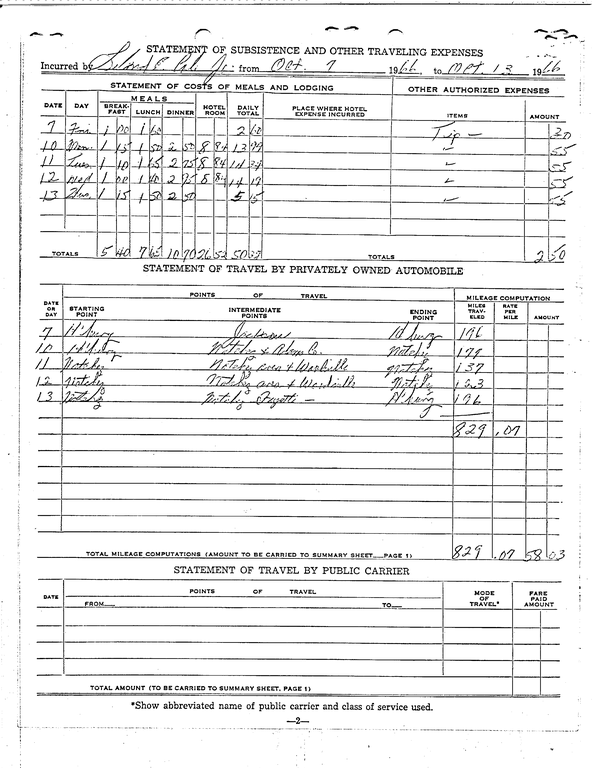 STATEMENT OF SUBSISTENCE AND OTHER TRAVELING EXPENSES
Incurred by Jr: from Oct. 7 1966, to OCT. 13 1966
STATEMENT OF COSTS OF MEALS AND LODGING OTHER AUTHORIZED EXPENSES
DATE DAY MEALS BREAK-FAST LUNCH DINNER HOTEL ROOM DAILY TOTAL PLACE WHERE HOTEL EXPENSE INCURRED ITEMS AMOUNT
7 Fri 1 00 1 60 2 60 Tip — 30
10 Mon. 1 15 1 50 2 50 8 84 13 99 55
11 Tues. 1 10 1 65 2 75 8 84 14 34 55
12 Wed 1 00 1 40 2 95 8 84 14 19 55
13 Thus. 1 15 1 50 2 50 5 15 55
TOTALS 5 40 7 65 10 70 26 52 50 27 TOTALS 2 50
STATEMENT OF TRAVEL BY PRIVATELY OWNED AUTOMOBILE
DATE OR DAY POINTS OF TRAVEL STARTING POINT INTERMEDIATE POINTS ENDING POINT MILEAGE COMPUTATION MILES TRAV-ELED RATE PER MILE AMOUNT
7 H'burg Jackson H'burg 196
10 H'burg Natchez & Adams Co. Natchez 177
11 Natchez Natchez area & Woodville Natchez 137
12 Natchez Natchez area & Woodville Natchez 123
13 Natchez Natchez Fayette — H'burg 196
829 .07
TOTAL MILEAGE COMPUTATIONS (AMOUNT TO BE CARRIED TO SUMMARY SHEET....PAGE 1) 829 .07 58 03
STATEMENT OF TRAVEL BY PUBLIC CARRIER
DATE POINTS OF TRAVEL FROM TO MODE OF TRAVEL* FARE PAID AMOUNT
TOTAL AMOUNT (TO BE CARRIED TO SUMMARY SHEET. PAGE 1)
*Show abbreviated name of public carrier and class of service used.
—2—